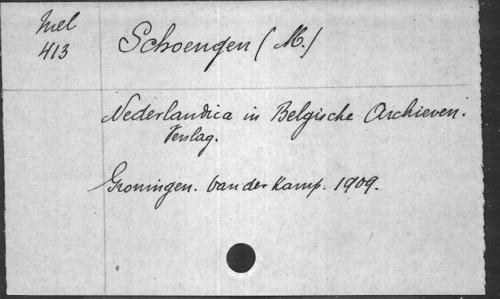 Mel
413
Schoengen (M.)
Nederlandica in Belgische Archieven.
Verslag.
Groningen. van der Kamp. 1909.